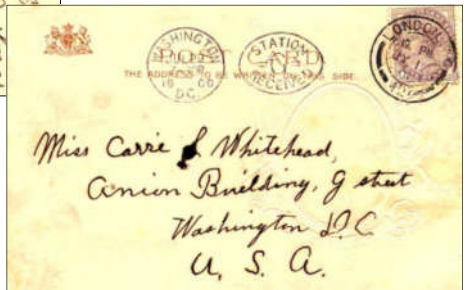 POST CARD
THE ADDRESS TO BE WRITTEN ON THIS SIDE
WASHINGTON
D.C.
STATION
RECEIVED
LONDON
Miss Carrie L Whitehead,
Anion Building, G street
Washington D.C
U.S.A.